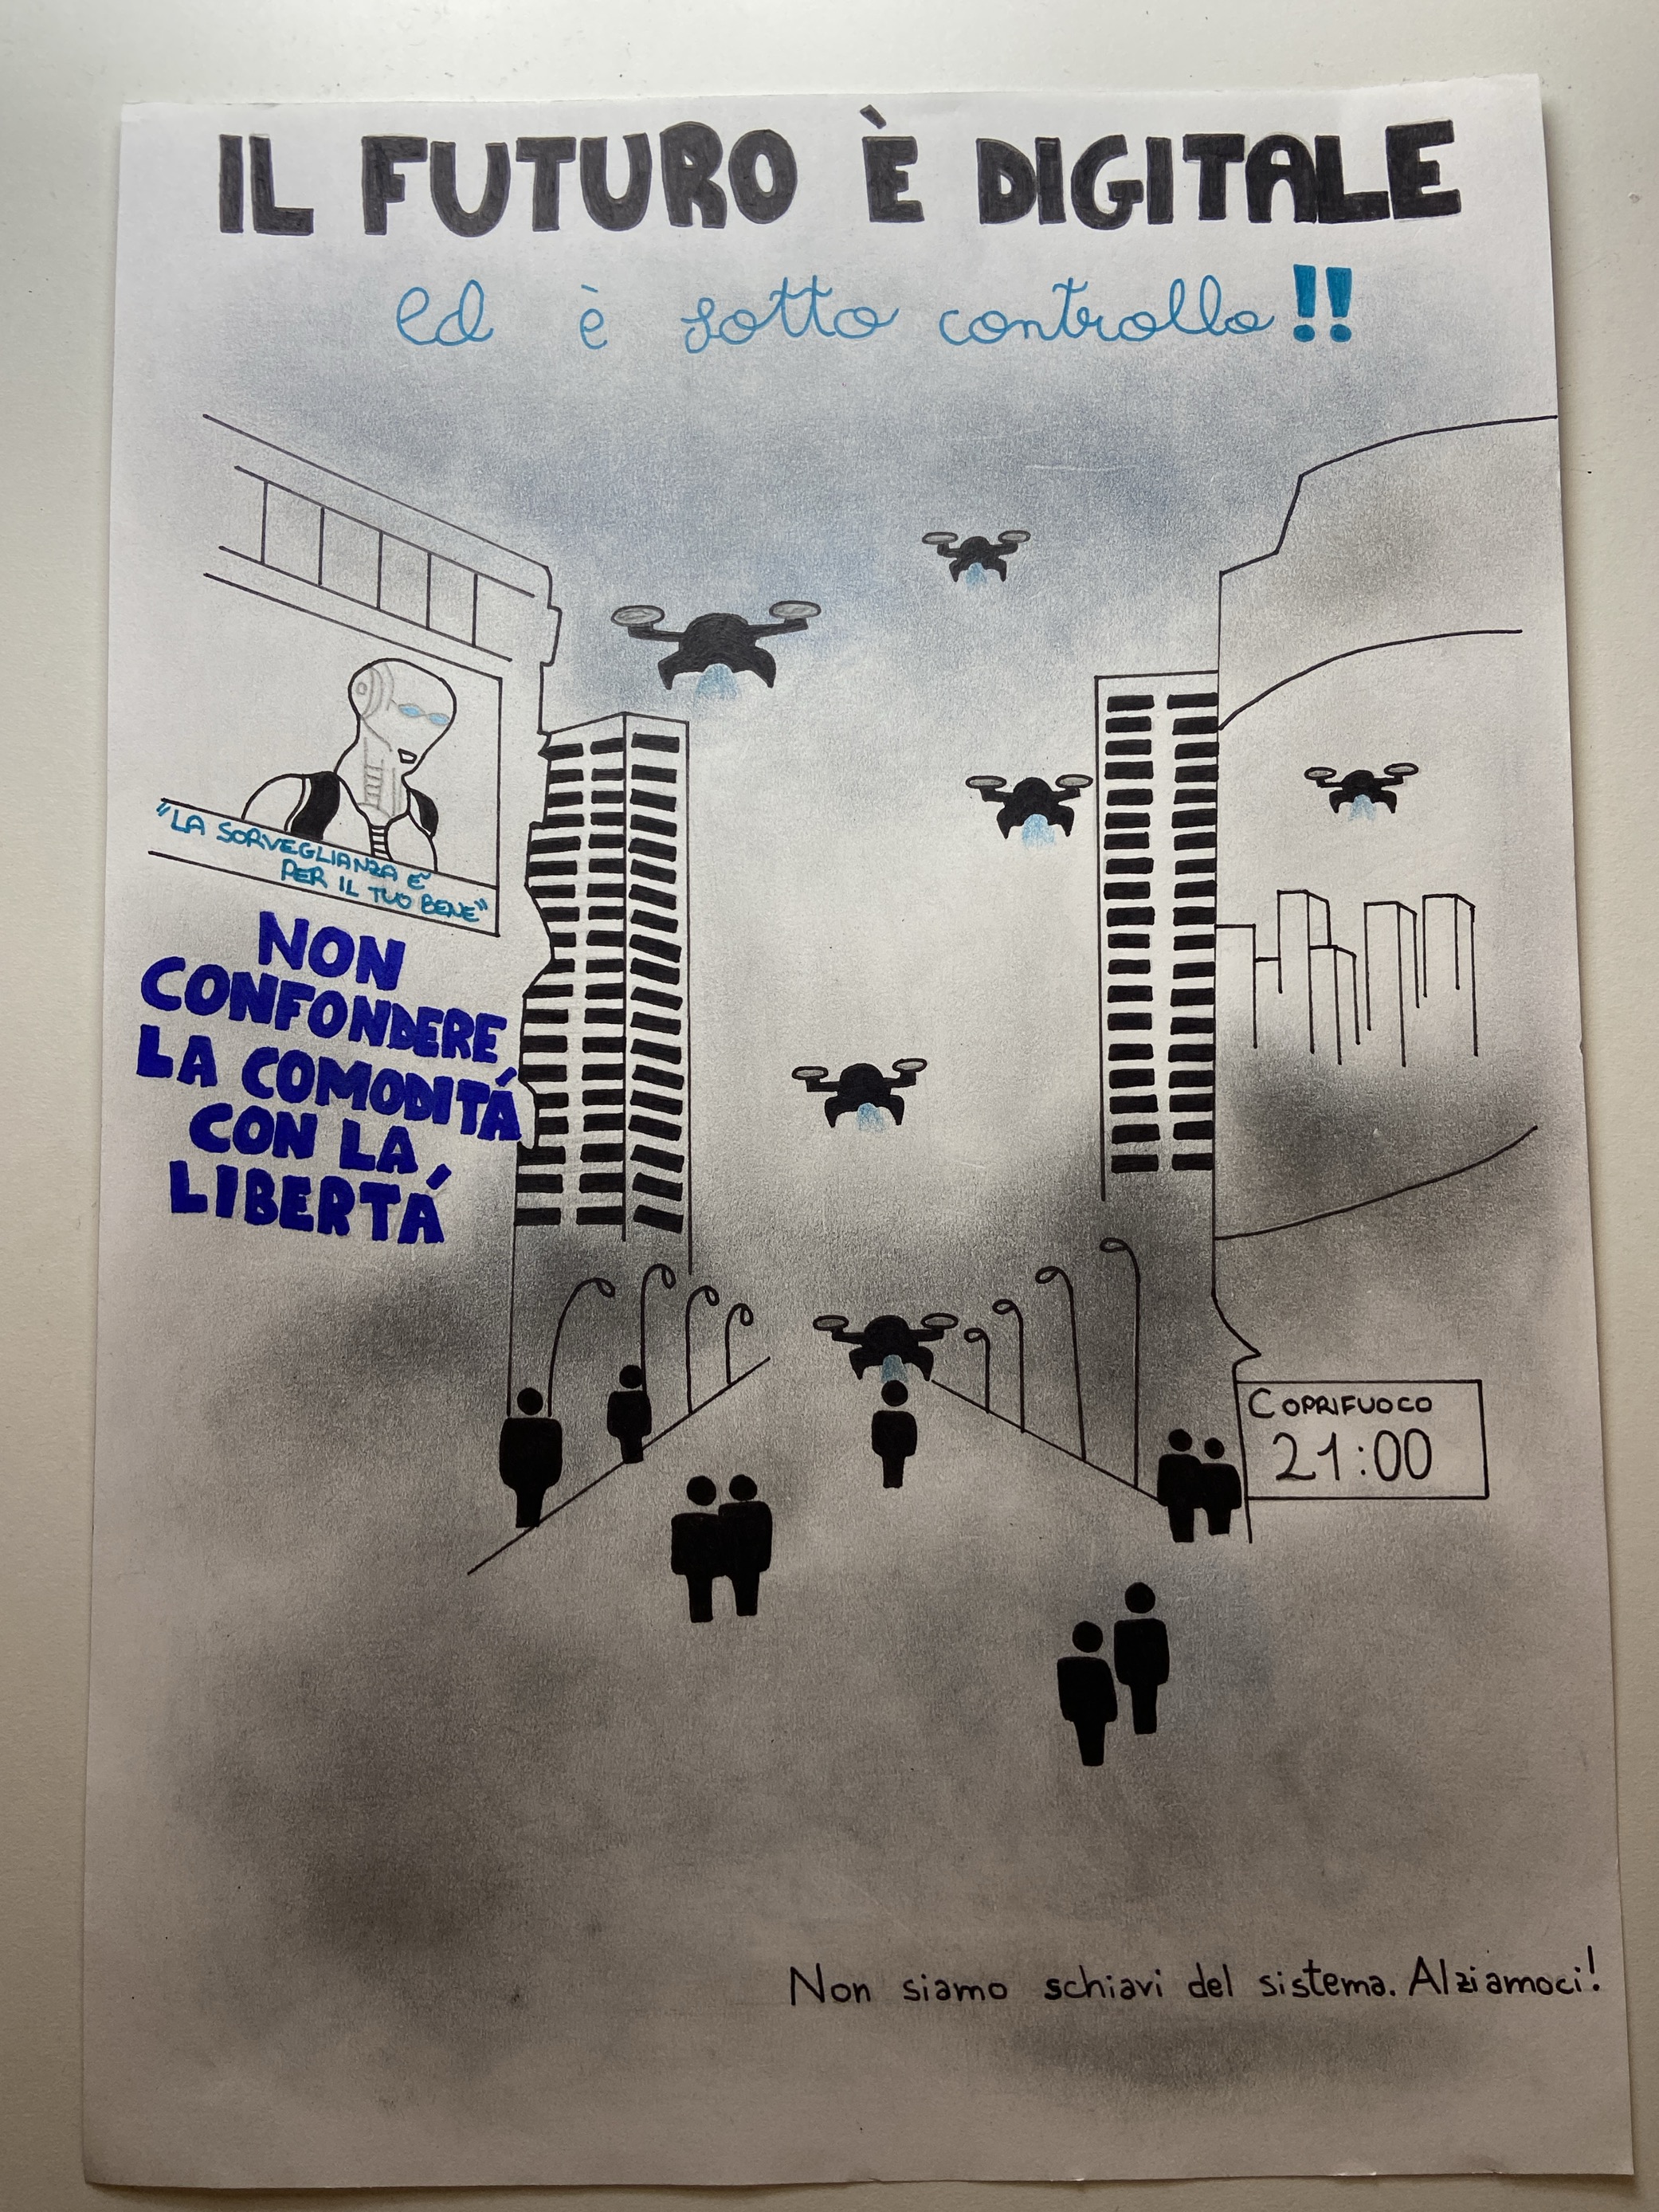 IL FUTURO È DIGITALE
ed è sotto controllo!!
"LA SORVEGLIANZA E'
PER IL TUO BENE"
NON
CONFONDERE
LA COMODITÁ
CON LA
LIBERTÁ
COPRIFUOCO
21:00
Non siamo schiavi del sistema. Alziamoci!